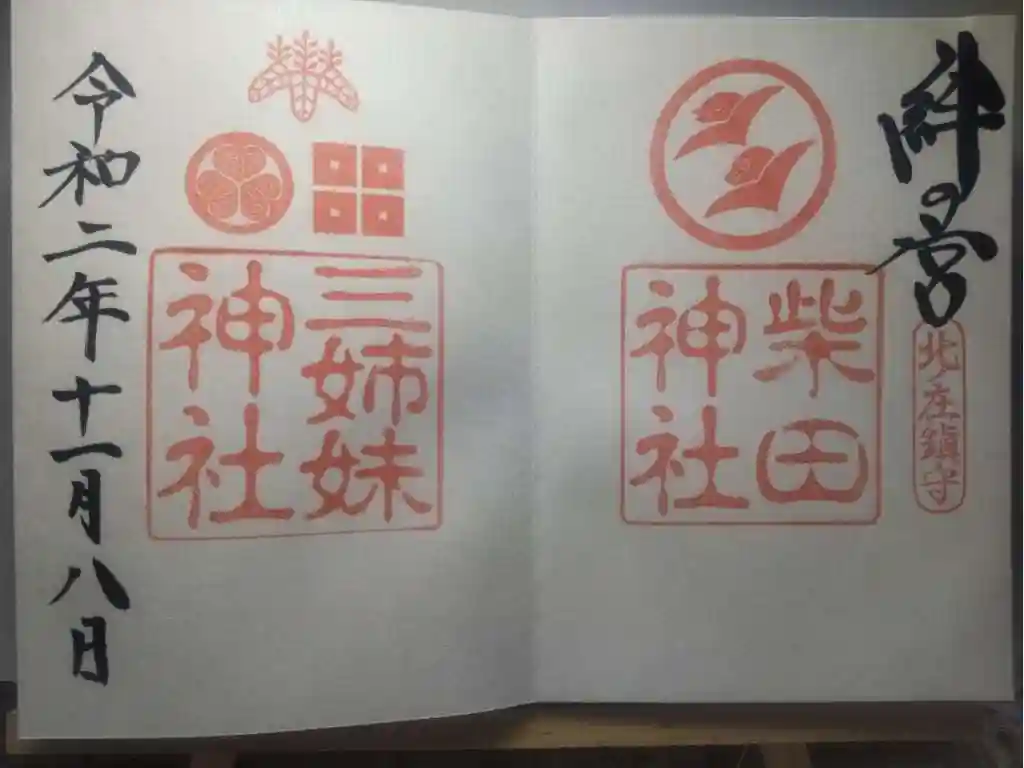 絆の宮
北庄鎮守
柴田
神社
三姉妹
神社
令和二年十一月八日